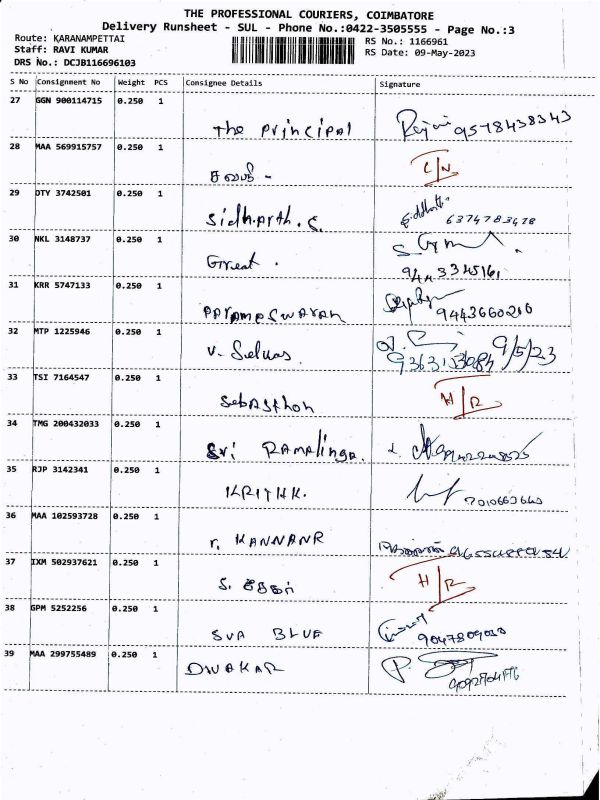 THE PROFESSIONAL COURIERS, COIMBATORE
Delivery Runsheet - SUL - Phone No.:0422-3505555 - Page No.:3
Route: KARANAMPETTAI
Staff: RAVI KUMAR
DRS No.: DCJB116696103
RS No.: 1166961
RS Date: 09-May-2023
S No Consignment No Weight PCS Consignee Details Signature
27 GGN 900114715 0.250 1
The Principal 9578438343
28 MAA 569915757 0.250 1
L/N
29 DTY 3742501 0.250 1
Sidharth. S. 6374783478
30 NKL 3148737 0.250 1
Great. 9443345161
31 KRR 5747133 0.250 1
Parameswaran 9443660216
32 MTP 1225946 0.250 1
V. Selvas 9/5/23
33 TSI 7164547 0.250 1
Sebasthon H/R
34 TMG 200432033 0.250 1
Sri Ramalinga.
35 RJP 3142341 0.250 1
KRITHK. 7010663640
36 MAA 102593728 0.250 1
r. KANNANR
37 IXM 502937621 0.250 1
S. H/R
38 GPM 5252256 0.250 1
SUA BLUE
39 MAA 299755489 0.250 1
DIVAKAR P.